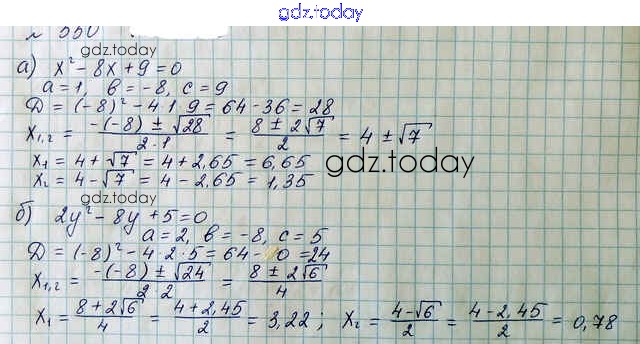 gdz.today
№ 550
gdz.today
а) x² - 8x + 9 = 0
a = 1, b = -8, c = 9
D = (-8)² - 4·1·9 = 64 - 36 = 28
x₁,₂ = (-(-8) ± √28)/(2·1) = (8 ± 2√7)/2 = 4 ± √7
x₁ = 4 + √7 = 4 + 2,65 = 6,65
gdz.today
x₂ = 4 - √7 = 4 - 2,65 = 1,35
gdz.today
б) 2y² - 8y + 5 = 0
a = 2, b = -8, c = 5
D = (-8)² - 4·2·5 = 64 - 0 = 24
x₁,₂ = (-(-8) ± √24)/(2 2) = (8 ± 2√6)/4
x₁ = (8 + 2√6)/4 = (4 + 2,45)/2 = 3,22; x₂ = (4 - √6)/2 = (4 - 2,45)/2 = 0,78